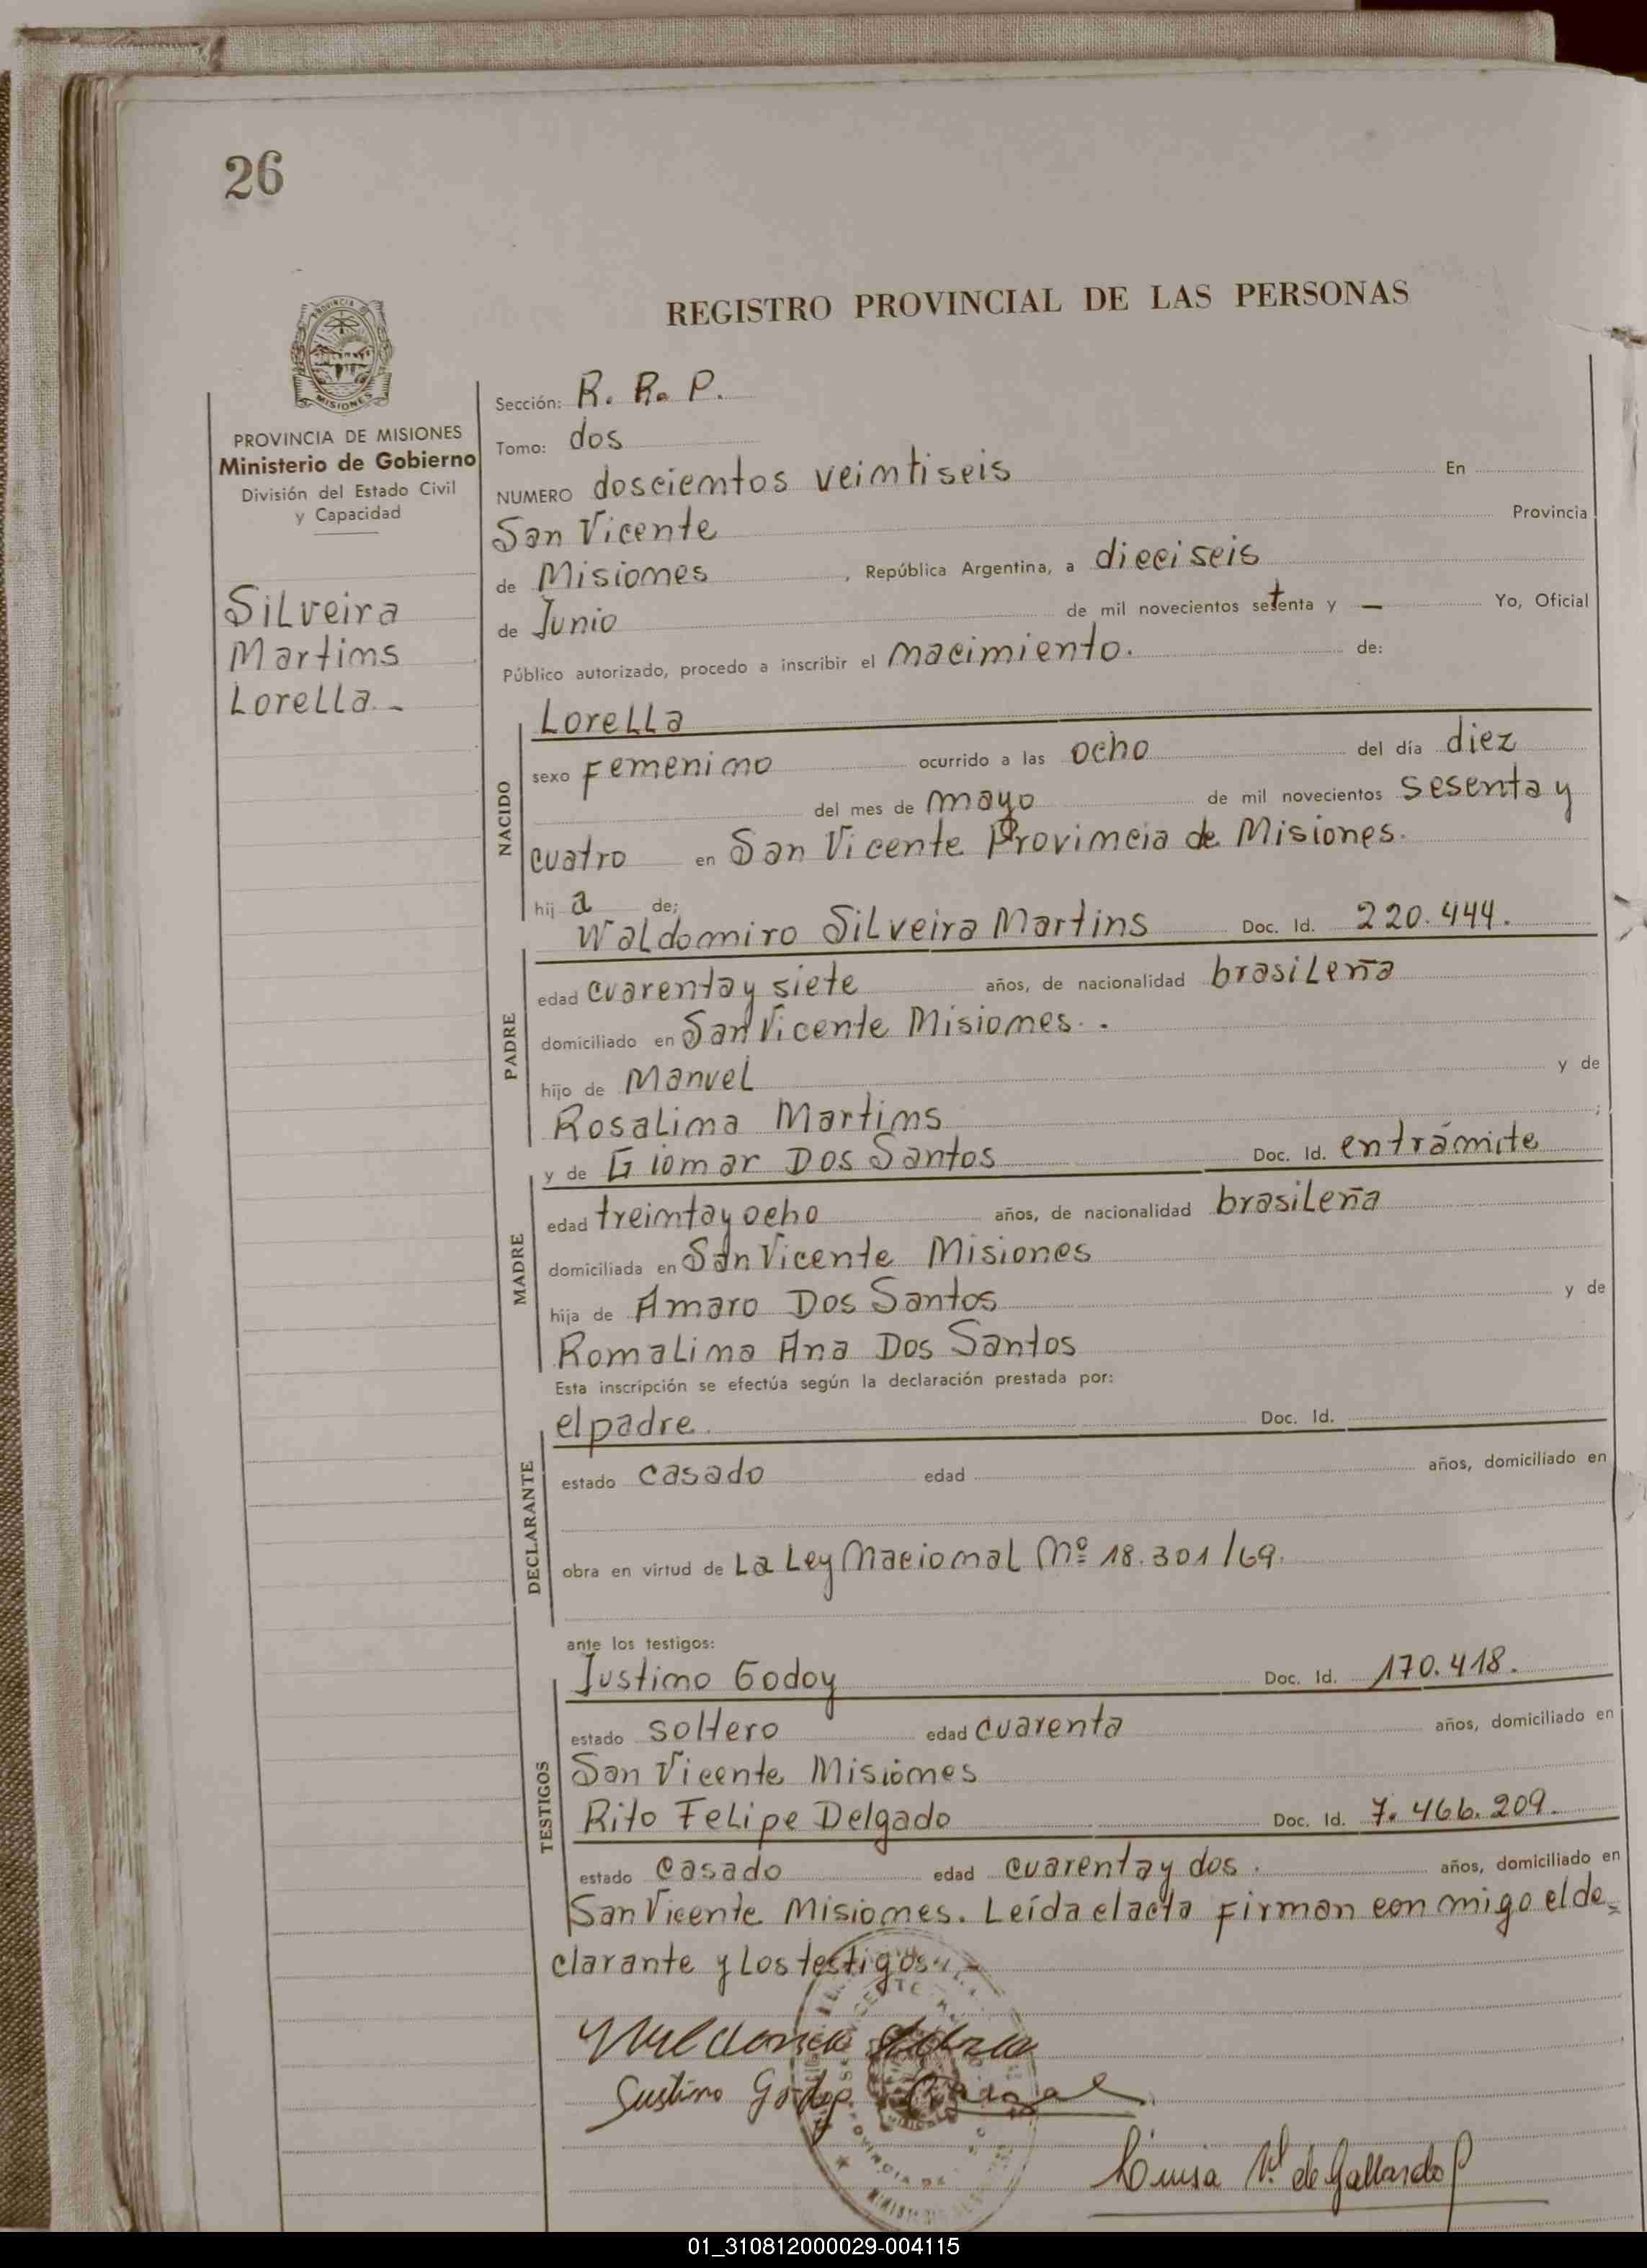 26
REGISTRO PROVINCIAL DE LAS PERSONAS
PROVINCIA DE MISIONES
Ministerio de Gobierno
División del Estado Civil
y Capacidad
Silveira
Martins
Lorella -
Sección: R. R. P.
Tomo: dos
NUMERO doscientos veintiseis En
San Vicente Provincia
de Misiones, República Argentina, a dieciseis
de Junio de mil novecientos setenta y — Yo, Oficial
Público autorizado, procedo a inscribir el nacimiento. de:
NACIDO
Lorella
sexo Femenino ocurrido a las ocho del día diez
del mes de mayo de mil novecientos sesenta y
cuatro en San Vicente Provincia de Misiones.
hij a de;
PADRE
Waldomiro Silveira Martins Doc. Id. 220.444.
edad cuarenta y siete años, de nacionalidad brasileña
domiciliado en San Vicente Misiones.
hijo de Manuel y de
Rosalina Martins;
MADRE
y de Giomar Dos Santos Doc. Id. en trámite
edad treinta y ocho años, de nacionalidad brasileña
domiciliada en San Vicente Misiones
hija de Amaro Dos Santos y de
Romalina Ana Dos Santos
Esta inscripción se efectúa según la declaración prestada por:
DECLARANTE
el padre. Doc. Id.
estado casado edad años, domiciliado en
obra en virtud de La Ley Nacional Nº 18.301/69.
ante los testigos:
TESTIGOS
Justino Godoy Doc. Id. 170.418.
estado soltero edad cuarenta años, domiciliado en
San Vicente Misiones
Rito Felipe Delgado Doc. Id. 7.466.209.
estado casado edad cuarenta y dos. años, domiciliado en
San Vicente Misiones. Leída el acta firman con migo el de=
clarante y los testigos.-
Justino Godoy
Luisa Vd. de Gallardo
01_310812000029-004115